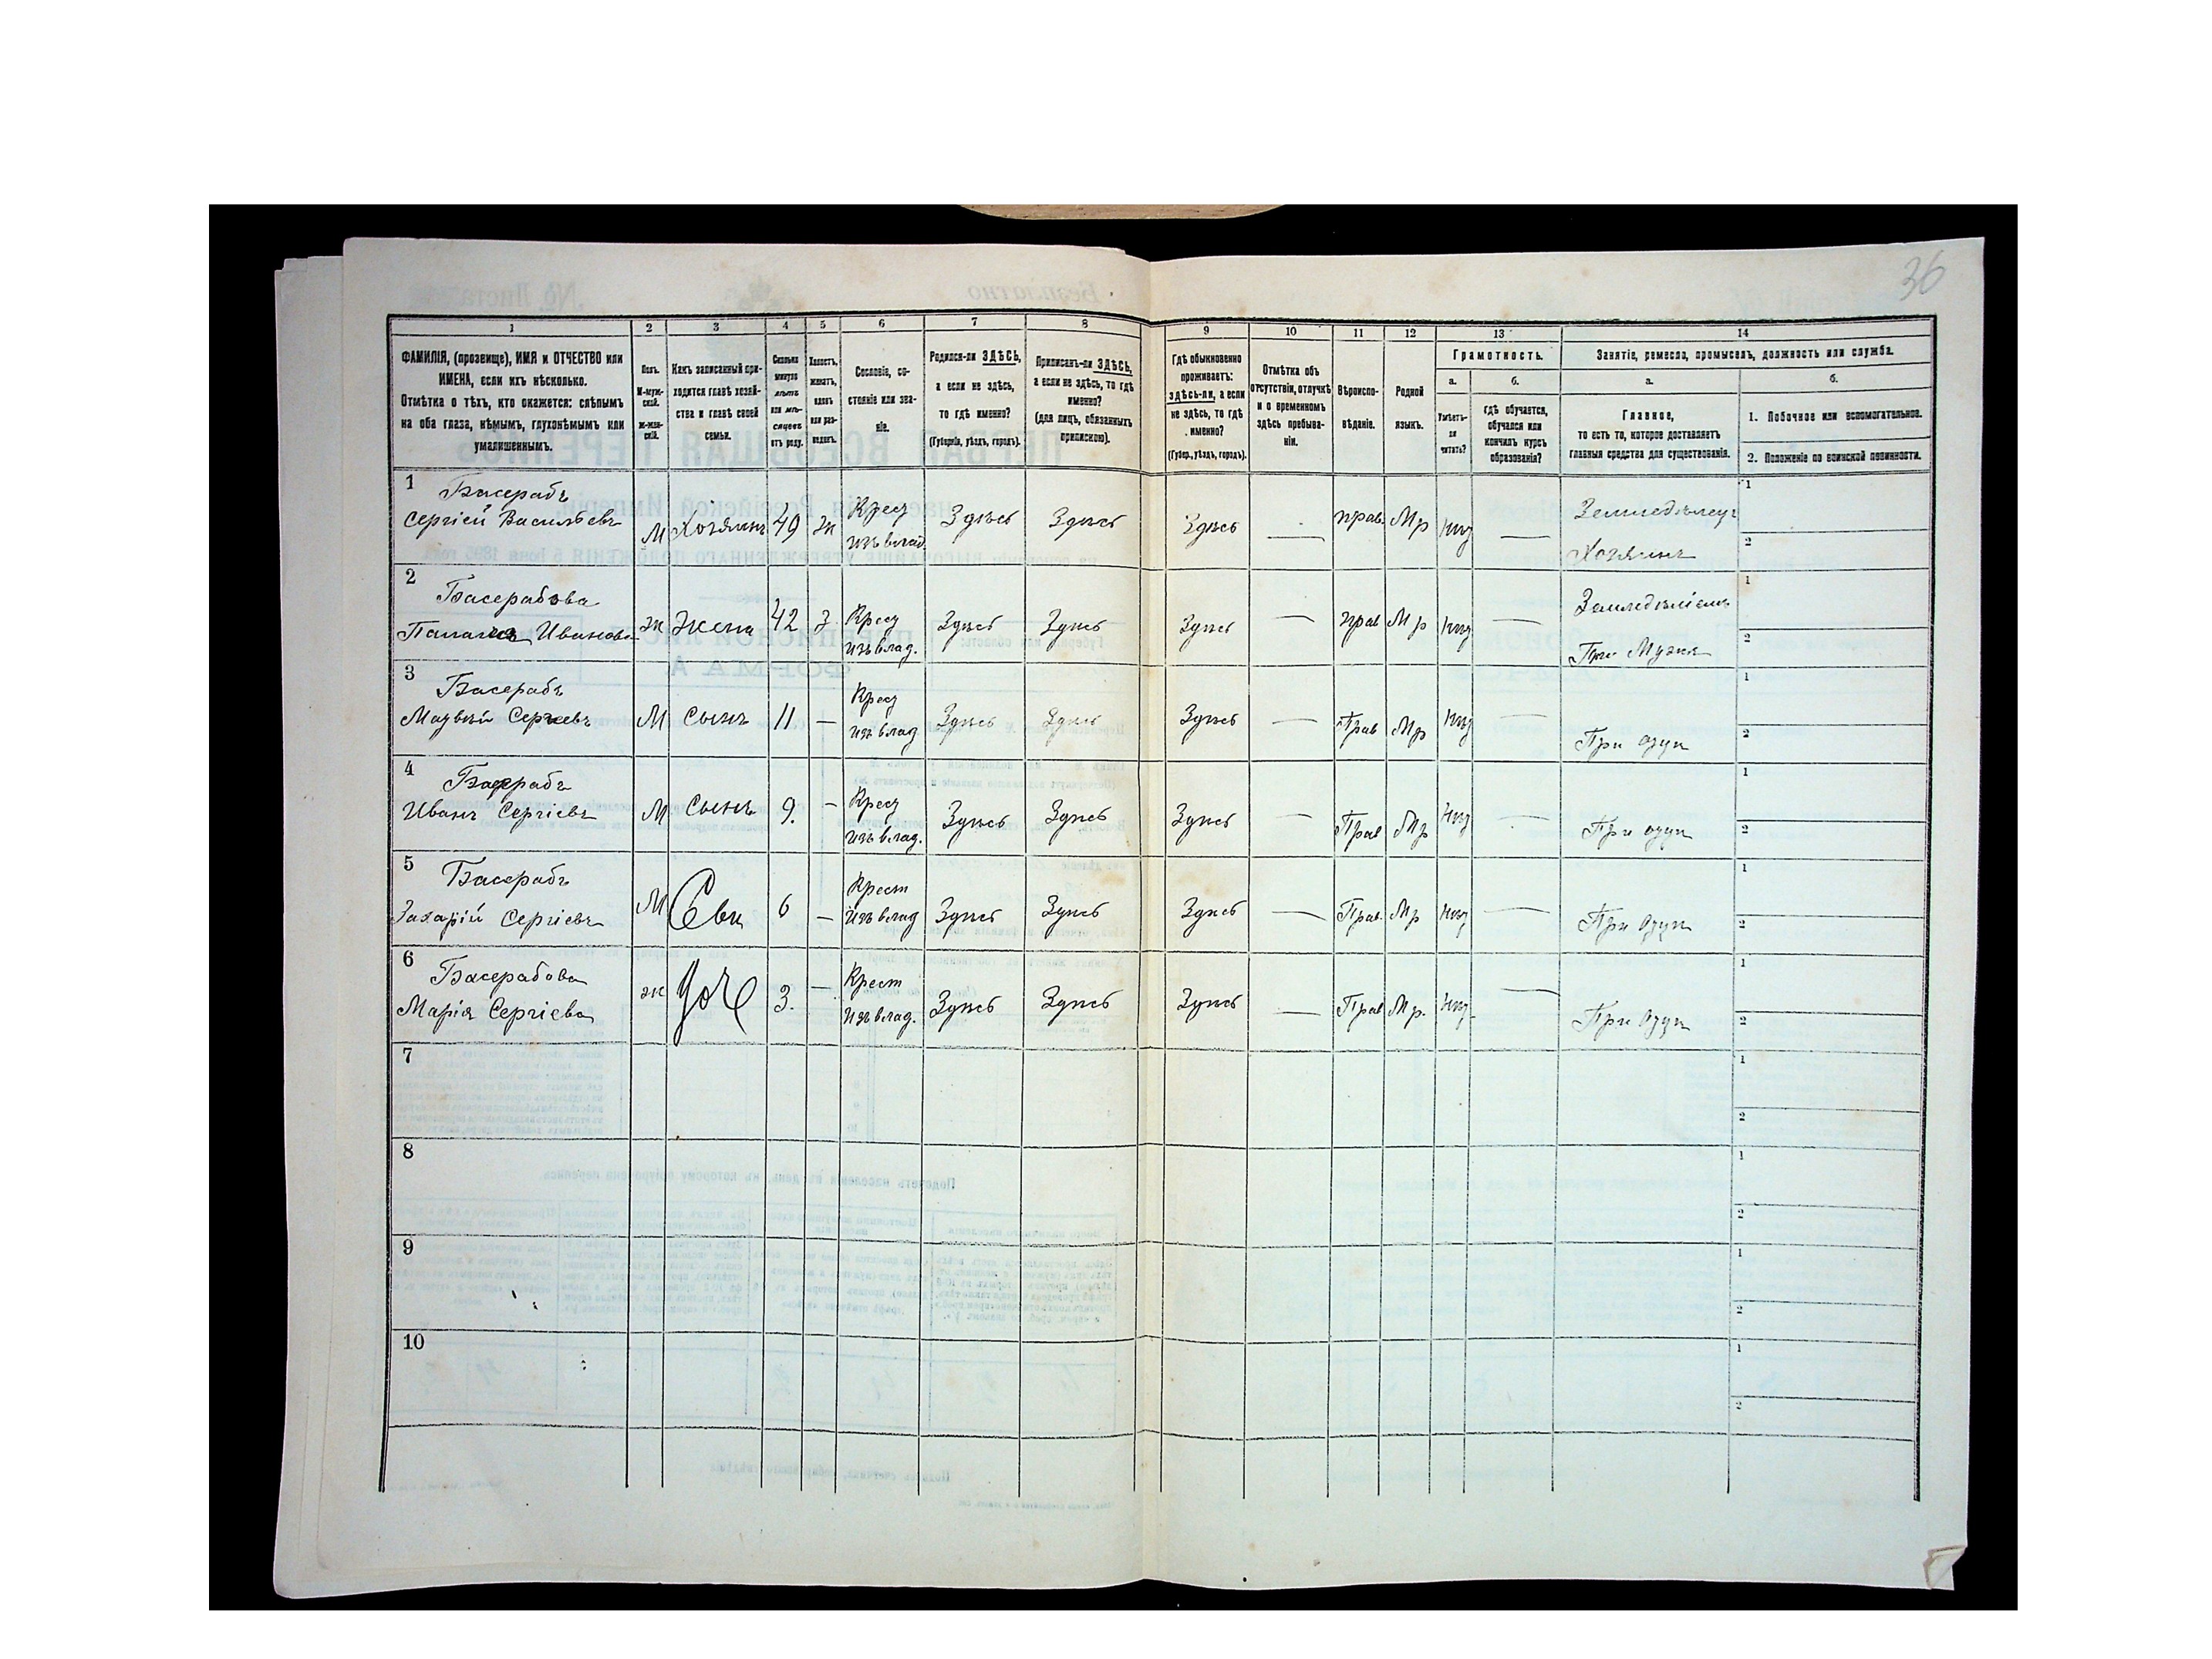 36
1 2 3 4 5 6 7 8 9 10 11 12 13 14
ФАМИЛІЯ, (прозвище), ИМЯ и ОТЧЕСТВО или
ИМЕНА, если ихъ нѣсколько.
Отмѣтка о тѣхъ, кто окажется: слѣпымъ
на оба глаза, нѣмымъ, глухонѣмымъ или
умалишеннымъ.
Полъ.
М-муж-
ской.
ж-жен-
скій.
Какъ записанный при-
ходится главѣ хозяй-
ства и главѣ своей
семьи.
Сколько
минуло
лѣтъ
или мѣ-
сяцевъ
отъ роду.
Холостъ,
женатъ,
вдовъ
или раз-
веденъ.
Сословіе, со-
стояніе или зва-
ніе.
Родился-ли ЗДѢСЬ,
а если не здѣсь,
то гдѣ именно?
(Губернія, уѣздъ, городъ).
Приписанъ-ли ЗДѢСЬ,
а если не здѣсь, то гдѣ
именно?
(для лицъ, обязанныхъ
припискою).
Гдѣ обыкновенно
проживаетъ:
здѣсь-ли, а если
не здѣсь, то гдѣ
именно?
(Губер., уѣздъ, городъ).
Отмѣтка объ
отсутствіи, отлучкѣ
и о временномъ
здѣсь пребыва-
ніи.
Вѣроиспо-
вѣданіе.
Родной
языкъ.
Грамотность.
а.
Умѣетъ-
ли
читать?
б.
гдѣ обучается,
обучался или
кончилъ курсъ
образованія?
Занятіе, ремесло, промыселъ, должность или служба.
а.
Главное,
то есть то, которое доставляетъ
главныя средства для существованія.
б.
1. Побочное или вспомогательное.
2. Положеніе по воинской повинности.
1 Басерабъ
Сергiей Васильевъ М Хозяинъ 49 ж Крес Здѣсь Здѣсь Здѣсь — прав. Мр — Земледѣлец
изъ влад. Хозяинъ
1
2
2 Басерабова
Иванова ж Жена 42 з Крес Здѣсь Здѣсь Здѣсь — прав Мр — Земледѣліемъ
изъ влад. При Мужи
1
2
3 Басерабъ
Сергѣевъ М Сынъ 11 — Крес Здѣсь Здѣсь Здѣсь — Прав Мр —
изъ влад При
1
2
4 Басерабъ
Иванъ Сергіевъ М Сынъ 9. — Крес Здѣсь Здѣсь Здѣсь — Прав Мр —
изъ влад. При
1
2
5 Басерабъ
Захарій Сергіевъ М 6 — Крест Здѣсь Здѣсь Здѣсь — Прав. Мр —
изъ влад При
1
2
6 Басерабова
Марія Сергіева ж доч 3. — Крест Здѣсь Здѣсь Здѣсь — Прав Мр. —
изъ влад. При
1
2
7
1
2
8
1
2
9
1
2
10
1
2